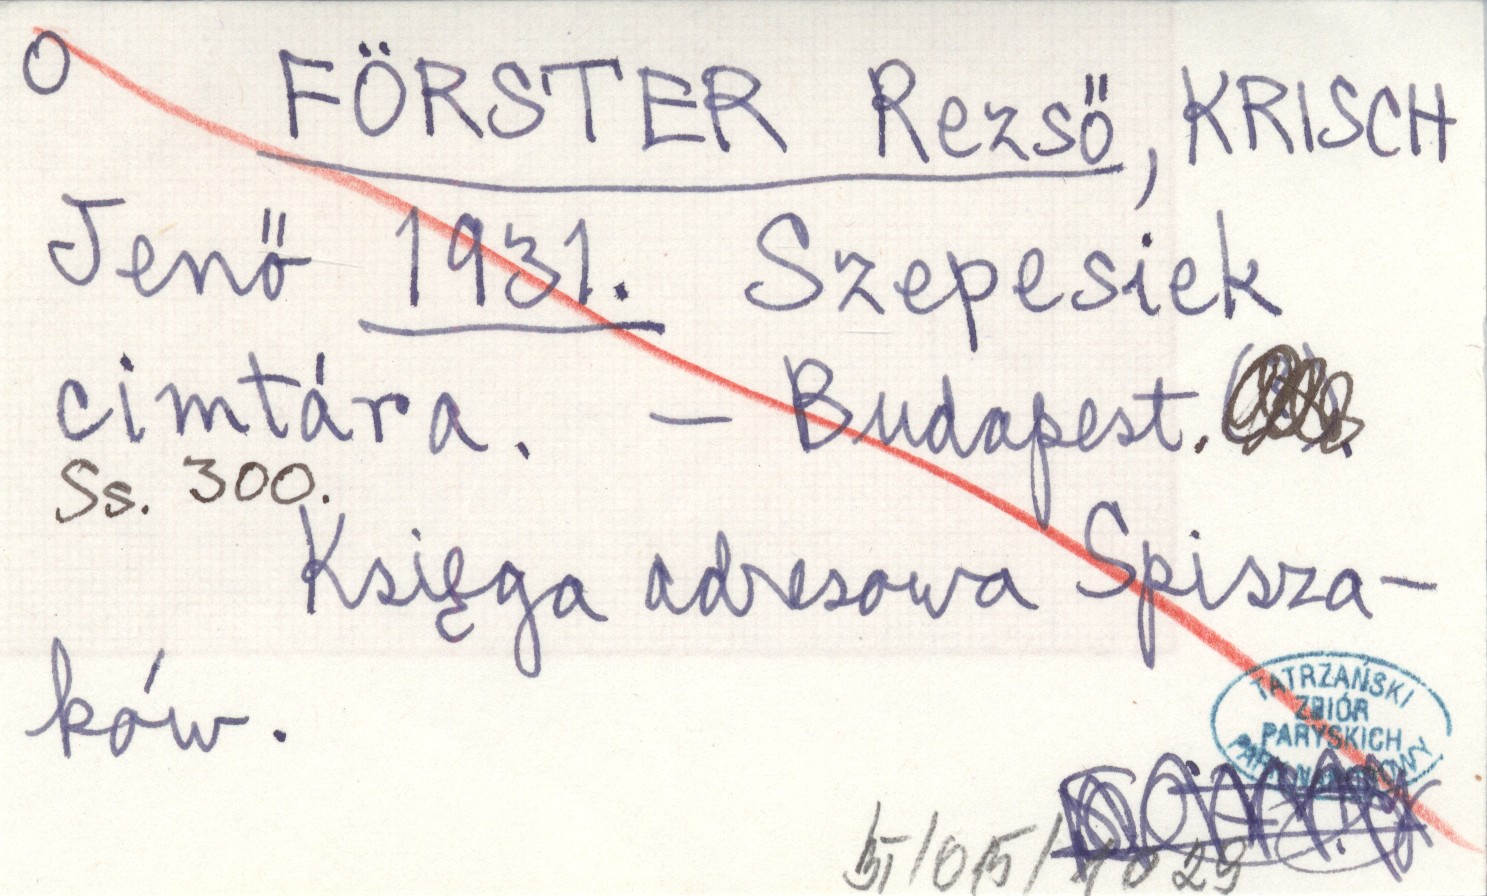 O FÖRSTER Rezső, KRISCH
Jenő 1931. Szepesiek
cimtára. — Budapest.
Ss. 300.
Księga adresowa Spisza-
ków.
TATRZAŃSKI
ZBIÓR
PARYSKICH
PARK NARODOWY